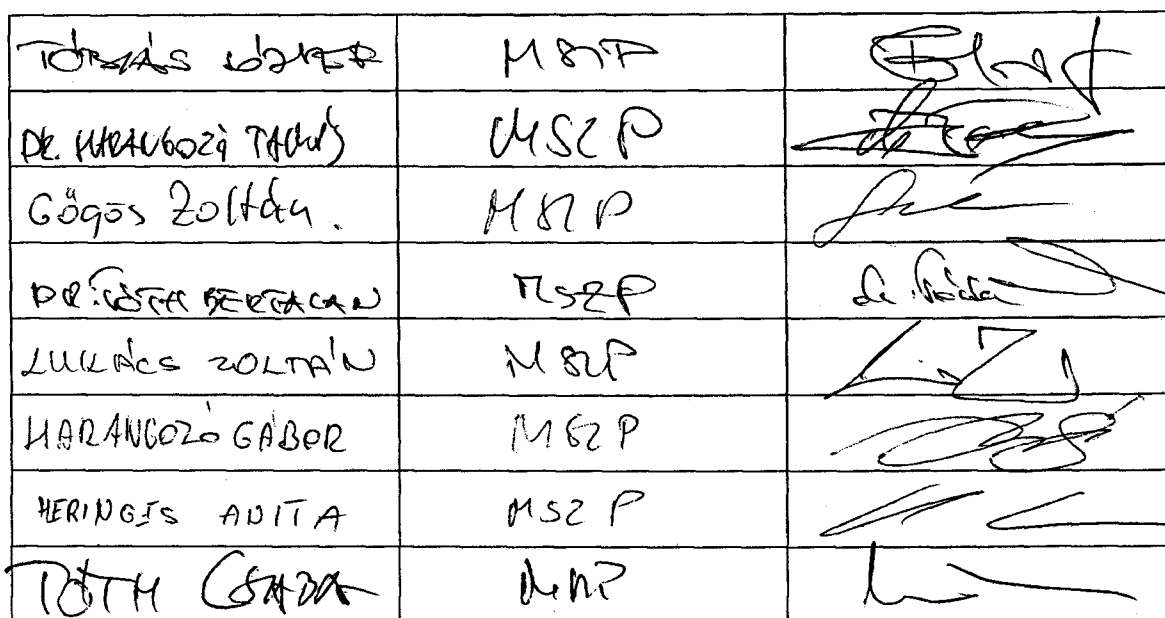 TÓBIÁS JÓZSEF MSZP
DR. HARANGOZÓ TAMÁS MSZP
Gőgös Zoltán. MSZP
DR. TÓTH BERTALAN MSZP
LUKÁCS ZOLTÁN MSZP
HARANGOZÓ GÁBOR MSZP
HERINGES ANITA MSZP
TÓTH CSABA MSZP